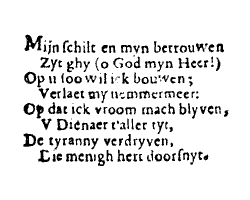 Mijn schilt en myn betrouwen
Zyt ghy (o God myn Heer!)
Op u soo wil ick bouwen;
Verlaet my nemmermeer:
Op dat ick vroom mach blyven,
V Dienaer t'aller tyt,
De tyranny verdryven,
Die menigh hert doorsnyt.